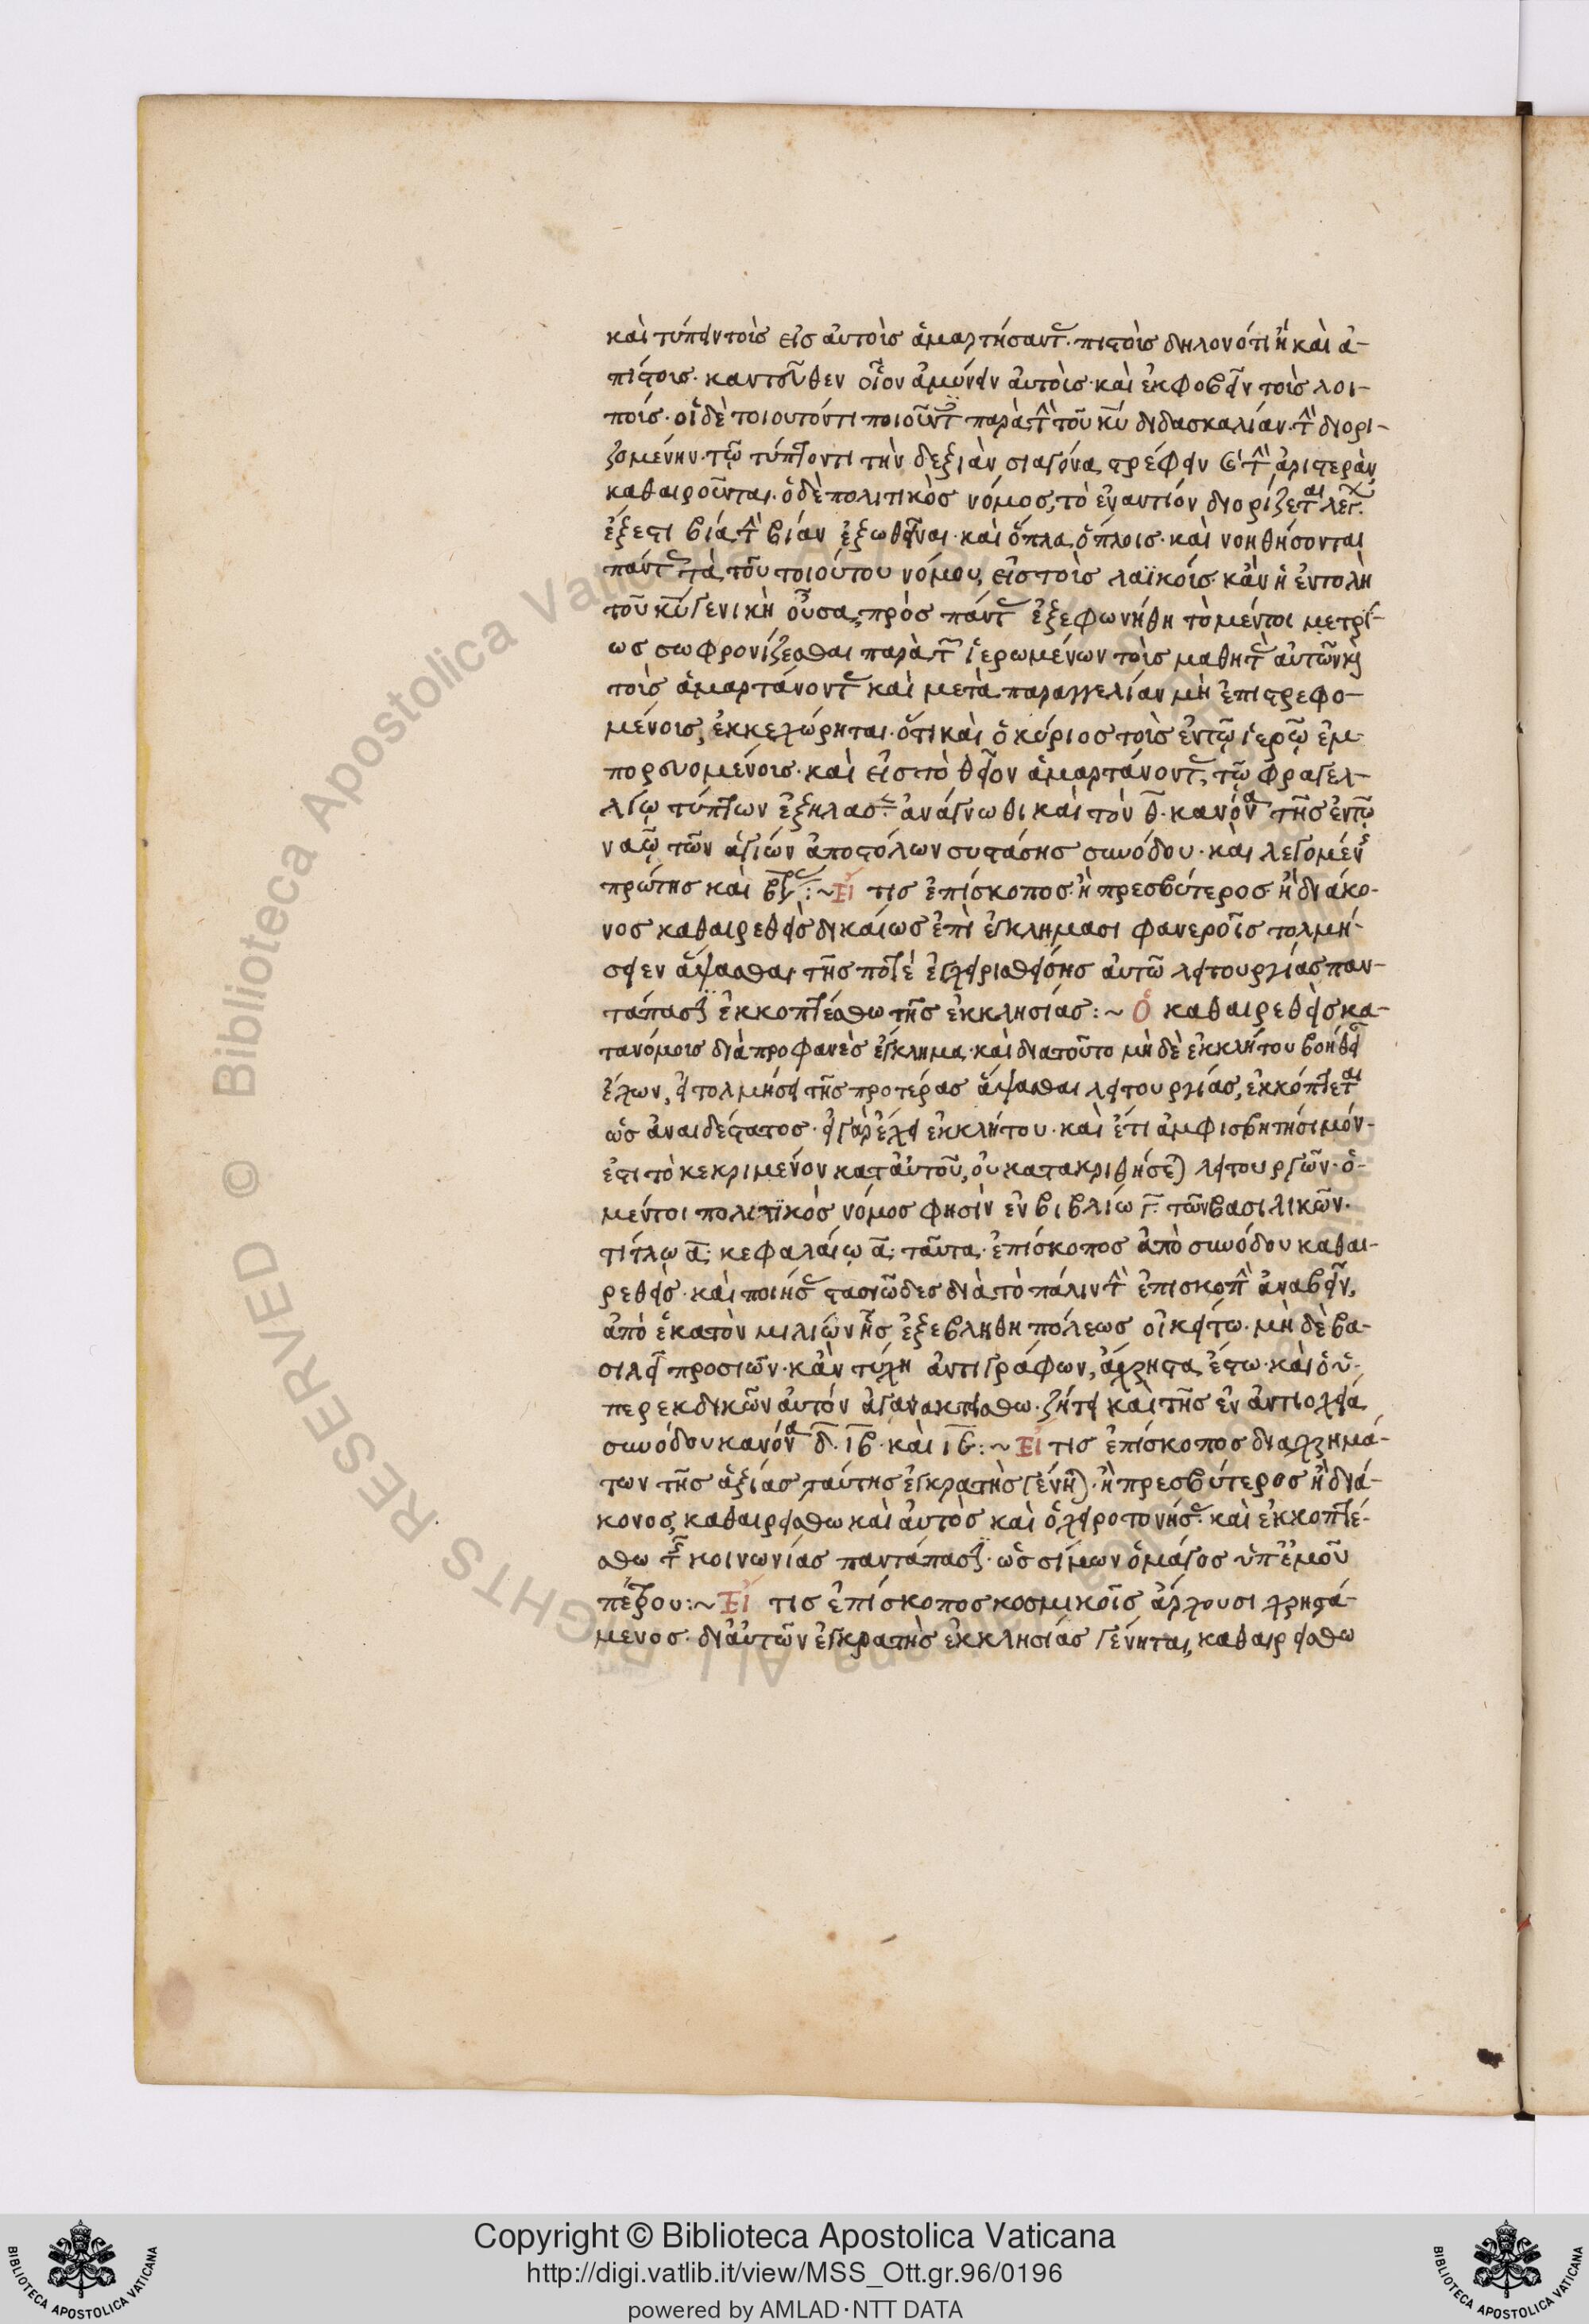 καὶ τύπτειν τοὺς εἰς αὐτοὺς ἁμαρτήσαντ. πιστοὺς δηλονότι ἢ καὶ ἀ-
πίστους. καντεῦθεν οἷον ἀμύνειν αὐτοῖς. καὶ ἐκφοβεῖν τοὺς λοι-
ποὺς. οἱ δὲ τοιουτόν τι ποιοῦντ παρὰ τ τοῦ κυ διδασκαλίαν. τ διορι-
ζομένην. τῷ τύπτοντι τὴν δεξιὰν σιαγόνα, στρέφειν καὶ τ ἀριστερὰν
καθαιροῦνται. ὁ δὲ πολιτικὸς νόμος, τὸ ἐναντίον διορίζεται λέγ.
ἔξεστι βία τ βίαν ἐξωθεῖναι. καὶ ὅπλα, ὅπλοις. καὶ νοηθήσονται
πάντ τὰ τοῦ τοιούτου νόμου, εἰς τοὺς λαϊκούς. κἂν ἡ ἐντολὴ
τοῦ κυ γενικὴ οὖσα, πρὸς πάντ ἐξεφωνήθη τὸ μέντοι μετρί-
ως σωφρονίζεσθαι παρὰ τ ἱερωμένων τοὺς μαθητ αὐτῶν καὶ
τοὺς ἁμαρτάνοντ καὶ μετὰ παραγγελίαν μὴ ἐπιστρεφο-
μένους, ἐκκεχώρηται. ὅτι καὶ ὁ κύριος τοὺς ἐν τῷ ἱερῷ ἐμ-
πορευομένους. καὶ εἰς τὸ θεῖον ἁμαρτάνοντ, τῷ φραγελ-
λίῳ τύπτων ἐξήλασ. ἀνάγνωθι καὶ τὸν θ. κανόνα τῆς ἐν τῷ
ναῷ τῶν ἁγίων ἀποστόλων συστάσης συνόδου. καὶ λεγομέν
πρώτης καὶ βας :~ Εἴ τις ἐπίσκοπος. ἢ πρεσβύτερος. ἢ διάκο-
νος καθαιρεθεὶς δικαίως ἐπὶ ἐγκλήμασι φανεροῖς τολμή-
σειεν ἅψασθαι τῆς ποτὲ ἐγχειρισθείσης αὐτῶ λειτουργίας παν-
τάπασιν ἐκκοπτέσθω τῆς ἐκκλησίας :~ Ὁ καθαιρεθεὶς κα-
τανόμοις διὰ προφανὲς ἔγκλημα. καὶ διατοῦτο μὴ δὲ ἐκκλήτου βοήθειαν
ἔχων, εἰ τολμήσει τῆς προτέρας ἅψασθαι λειτουργίας, ἐκκόπτεται
ὡς ἀναιδέστατος. εἰ γὰρ ἔχει ἐκκλήτου. καὶ ἔτι ἀμφισβητήσιμόν-
ἐστι τὸ κεκριμένον κατ αὐτοῦ, οὐ κατακριθήσεται λειτουργῶν. ὁ-
μέντοι πολιτϊκὸς νόμος φησὶν ἐν βιβλίω γ. τῶν βασιλικῶν.
τίτλῳ α. κεφαλαίῳ α. ταῦτα. ἐπίσκοπος ἀπὸ συνόδου καθαι-
ρεθεὶς. καὶ ποιήσ στασιῶδες διὰ τὸ πάλιν τ ἐπισκοπ ἀναβεῖν,
ἀπὸ ἑκατὸν μιλίων ἧς ἐξεβληθη πόλεως οἰκείτω. μὴ δὲ βα-
σιλεῖ προσιών. κἂν τύχη ἀντιγράφων, ἄχρηστα ἔστω. καὶ ὁ ὑ-
περεκδικῶν αὐτόν ἀγανακτείσθω. ζήτει καὶ τῆς ἐν ἀντιοχείᾳ
συνόδου κανόνα δ. ιβ. καὶ ιϛ :~ Εἴ τις ἐπίσκοπος διαχρημά-
των τῆς ἀξίας ταύτης ἐγκρατὴς γένηται. ἢ πρεσβύτερος ἢ διά-
κονος, καθαιρείσθω καὶ αὐτὸς καὶ ὁ χειροτονήσ. καὶ ἐκκοπτέ-
σθω τ κοινωνίας παντάπασιν. ὡς σίμων ὁ μάγος ὑπ ἐμοῦ
πέτρου :~ Εἴ τις ἐπίσκοπος κοσμικοῖς ἄρχουσι χρησά-
μενος. δι αὐτῶν ἐγκρατὴς ἐκκλησίας γένηται, καθαιρείσθω
Copyright © Biblioteca Apostolica Vaticana
http://digi.vatlib.it/view/MSS_Ott.gr.96/0196
powered by AMLAD·NTT DATA
BIBLIOTECA APOSTOLICA VATICANA
BIBLIOTECA APOSTOLICA VATICANA